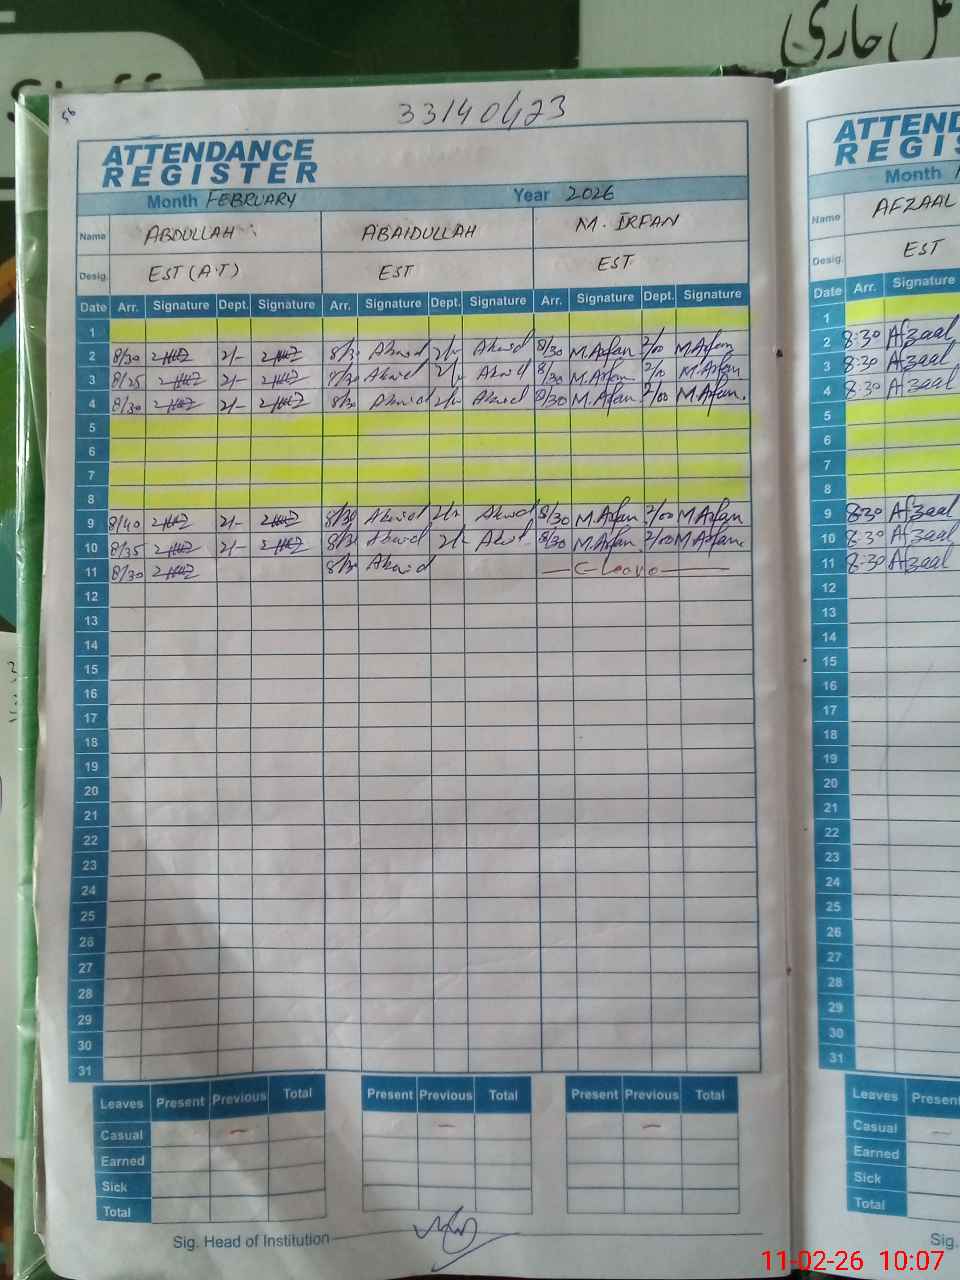 Staff
ل جاری
56
33140423
ATTENDANCE
REGISTER
Month FEBRUARY Year 2026
Name ABDULLAH ABAIDULLAH M. IRFAN
Desig. EST (A.T) EST EST
Date Arr. Signature Dept. Signature Arr. Signature Dept. Signature Arr. Signature Dept. Signature
1
2 8/30 2/- 8/30 2/- 8/30 M.Arfan 2/00 M.Arfan
3 8/25 2/- 8/30 2/- 8/30 M.Arfan 2/0 M.Arfan
4 8/30 2/- 8/30 2/- 8/30 M.Arfan 2/00 M.Arfan.
5
6
7
8
9 8/40 2/- 8/30 2/- 8/30 M.Arfan 2/00 M.Arfan
10 8/35 2/- 8/30 2/- 8/30 M.Arfan 2/00 M.Arfan
11 8/30 8/30 C leave
12
13
14
15
16
17
18
19
20
21
22
23
24
25
26
27
28
29
30
31
Leaves Present Previous Total Present Previous Total Present Previous Total
Casual – – –
Earned
Sick
Total
Sig. Head of Institution
ATTEND
REGIS
Month
Name AFZAAL
Desig. EST
Date Arr. Signature
1
2 8:30 Afzaal
3 8:30 Afzaal
4 8:30 Afzaal
5
6
7
8
9 8:30 Afzaal
10 8:30 Afzaal
11 8:30 Afzaal
12
13
14
15
16
17
18
19
20
21
22
23
24
25
26
27
28
29
30
31
Leaves Present
Casual –
Earned
Sick
Total
Sig.
11-02-26 10:07